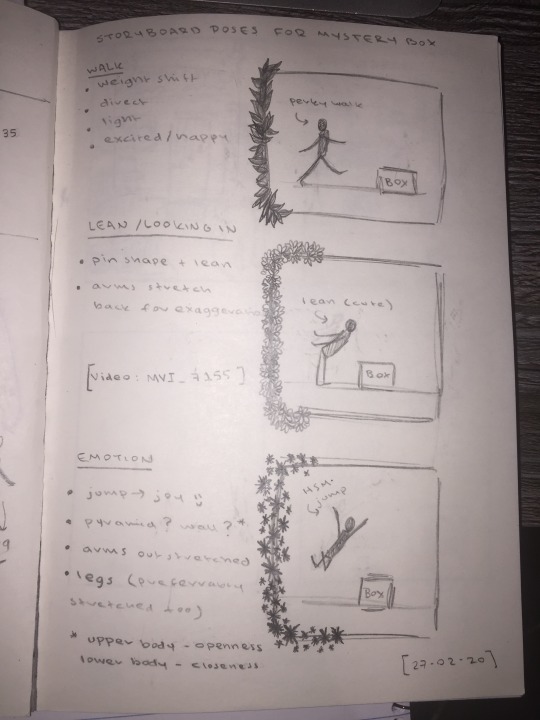 STORYBOARD POSES FOR MYSTERY BOX
WALK
• weight shift
• direct
• light
• excired/happy
perky walk
BOX
LEAN/LOOKING IN
• pin shape + lean
• arms stretch
back for exaggeration
[Video: MVI_7155]
lean (cute)
BOX
EMOTION
• jump → joy
• pyramid? wall?*
• arms outstretched
• legs (preferrably
stretched too)
* upper body - openness
lower body - closeness
HSM-
jump
BOX
[27-02-20]
35
9